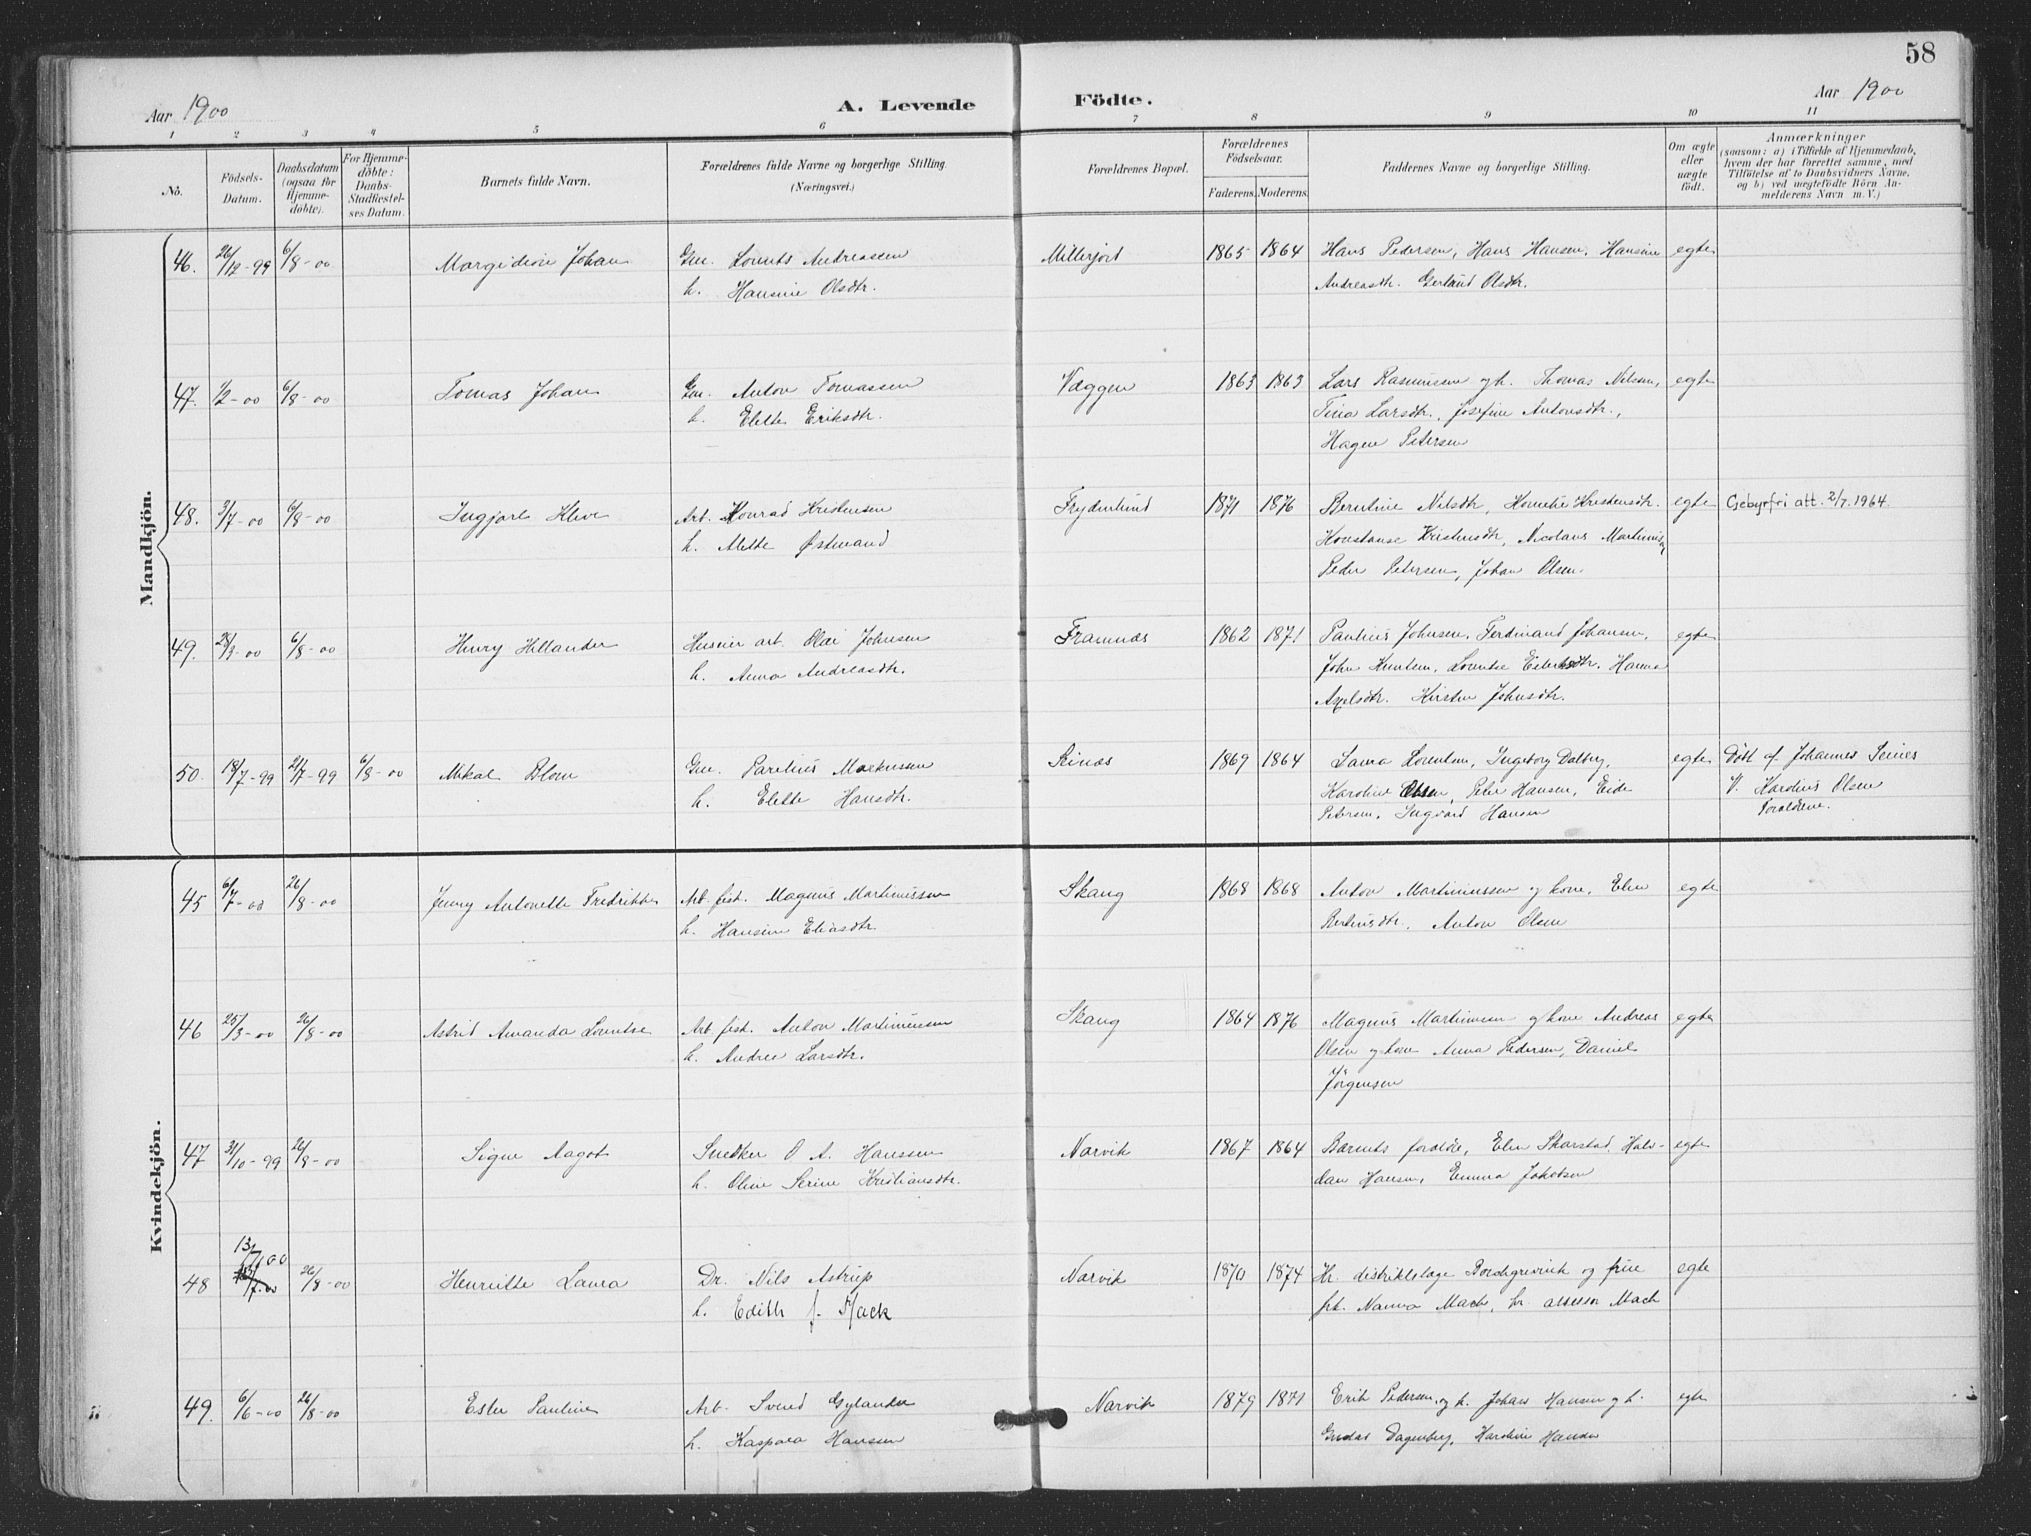 58
Aar 1900
A. Levende Födte.
Aar 1900
1 2 3 4 5 6 7 8 9 10 11
No.
Födsels-Datum.
Daabsdatum (ogsaa for Hjemme-döbte).
For Hjemme-döbte: Daabs-Stadfæstel-ses Datum.
Barnets fulde Navn.
Forældrenes fulde Navne og borgerlige Stilling. (Næringsvei.)
Forældrenes Bopæl.
Forældrenes Födselsaar.
Faderens. Moderens.
Faddernes Navne og borgerlige Stilling.
Om ægte eller uægte födt.
Anmærkninger
(saasom: a) i Tilfælde af Hjemmedaab, hvem der har forrettet samme, med Tilföielse af to Daabsvidners Navne, og b) ved uægtefödte Börn An-melderens Navn m. V.)
Mandkjön.
46. 26/12-99 6/8-00 Margideon Johan Gm. Lorents Andreassen Millerjord 1865 1864 Hans Pedersen, Hans Hansen, Hansine egte
h. Hansine Olsdtr. Andreasdtr. Gerhard Olsdtr.
47. 1/2-00 6/8-00 Tomas Johan Gm. Anton Tomassen Væggen 1863 1863 Lars Rasmussen og h. Thomas Nilsen, egte
h. Elette Eriksdtr. Tina Larsdtr., Josefine Antonsdtr.,
Hagen Petersen
48. 3/7-00 6/8-00 Ingjarl Kleve Arb. Konrad Kristensen Frydenlund 1871 1876 Berntine Nilsdtr, Kristensdtr. egte Gebyrfri att. 2/7.1964.
h. Mette Østmand Konstanse Kristensdtr, Nicolaus
Peder Petersen, Johan Olsen
49. 28/3-00 6/8-00 Henry Hillander arb. Olai Johnsen Framnæs 1862 1871 Paulius Johnsen, Ferdinand Johansen, egte
h. Anna Andreasdtr. John Knutsen, Lorentse Hanna
Axelsdtr. Kirsten Johnsdtr.
50. 18/7-99 21/7-99 6/8-00 Mikal Blom Gm. Parelius Markussen 1869 1864 Laura Lorentsen, Ingeborg Dalberg, egte Döbt af Johannes
h. Elette Hansdtr. Karoline Olsen, Peter Hansen, V. Karolius Olsen
Petersen, Ingvard Hansen Foraldrene.
Kvindekjön.
45 6/7-00 26/8-00 Jenny Antonette Fredrikke Arb. fisk. Magnus Martinussen Skaug 1868 1868 Anton Martinussen og kone, Elen egte
h. Hansine Eliasdtr Anton Olsen
46 25/3-00 26/8-00 Astrid Amanda Lorentse Arb. fisk. Anton Martinussen Skaug 1864 1876 Magnus Martinussen og kone Andreas egte
h. Andrea Larsdtr. Olsen og kone Anna Pedersen, Daniel
Jørgensen
47 31/10-99 26/8-00 Signe Aagot Snedker O A. Hanssen Narvik 1867 1864 Barnets foraldre, Elen Skarstad, Halv- egte
h. Oline Serine Kristiansdtr. dan Hansen, Emma Jakobsen
13/7 00
48 26/8-00 Henriette Laura Dr. Nils Astrup Narvik 1870 1874 Hr. distriktslæge Borchgrevink og frue egte
h. Edith f. Mack frk. Nanna Mack, hr. assessor Mack
49. 6/6-00 26/8-00 Ester Pauline Arb. Svend Gylander Narvik 1879 1871 Erik Pedersen, og h. Johan Hansen og h. egte
h. Kaspara Hansen Dagenberg, Karoline